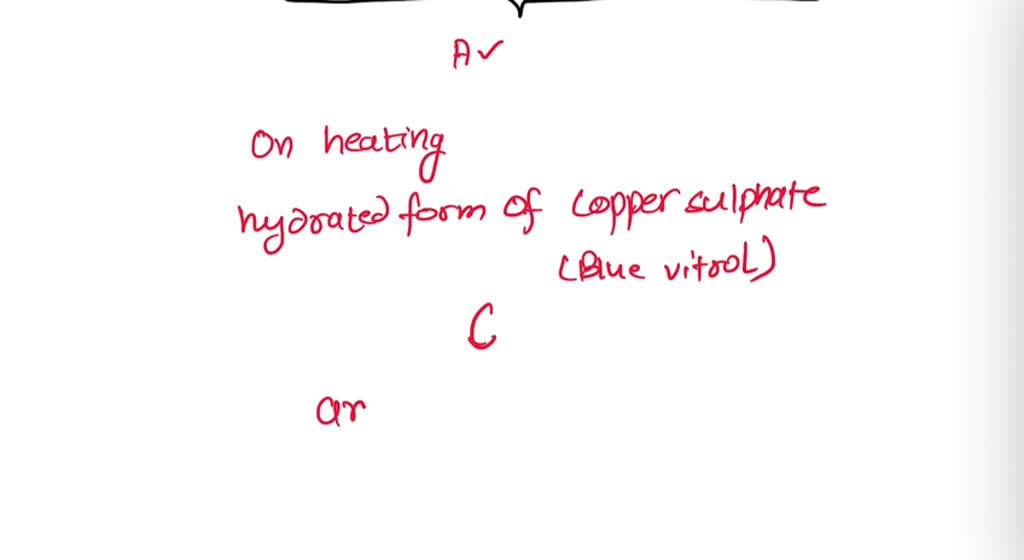 A✓
On heating
hydrated form of Copper sulphate
(Blue vitrol)
C
ar